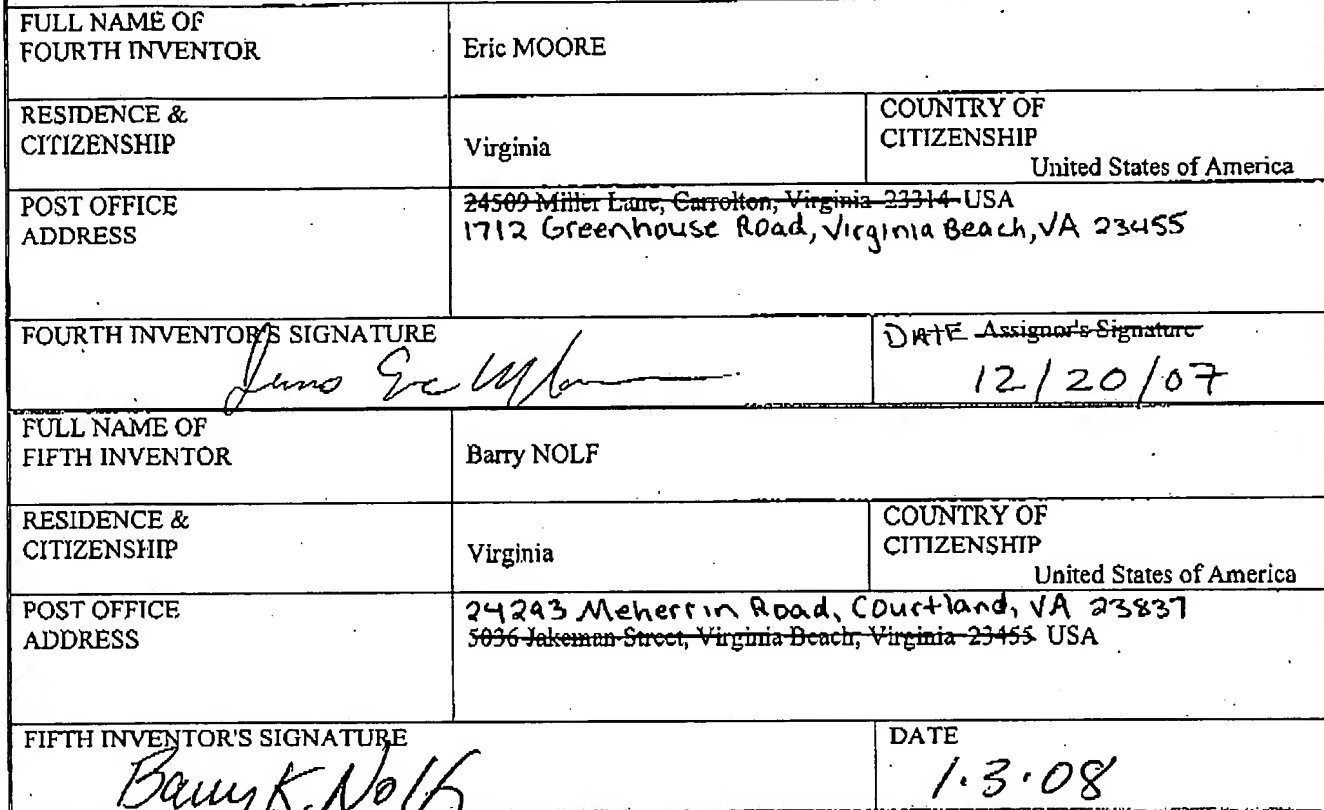 FULL NAME OF
FOURTH INVENTOR
Eric MOORE
RESIDENCE &
CITIZENSHIP
Virginia
COUNTRY OF
CITIZENSHIP
United States of America
POST OFFICE
ADDRESS
24509 Miller Lane, Carrolton, Virginia 23314 USA
1712 Greenhouse Road, Virginia Beach, VA 23455
FOURTH INVENTOR'S SIGNATURE
DATE Assignor's Signature
12/20/07
FULL NAME OF
FIFTH INVENTOR
Barry NOLF
RESIDENCE &
CITIZENSHIP
Virginia
COUNTRY OF
CITIZENSHIP
United States of America
POST OFFICE
ADDRESS
24293 Meherrin Road, Courtland, VA 23837
5036 Jakeman Street, Virginia Beach, Virginia 23455 USA
FIFTH INVENTOR'S SIGNATURE
Barry K. Nolf
DATE
1.3.08